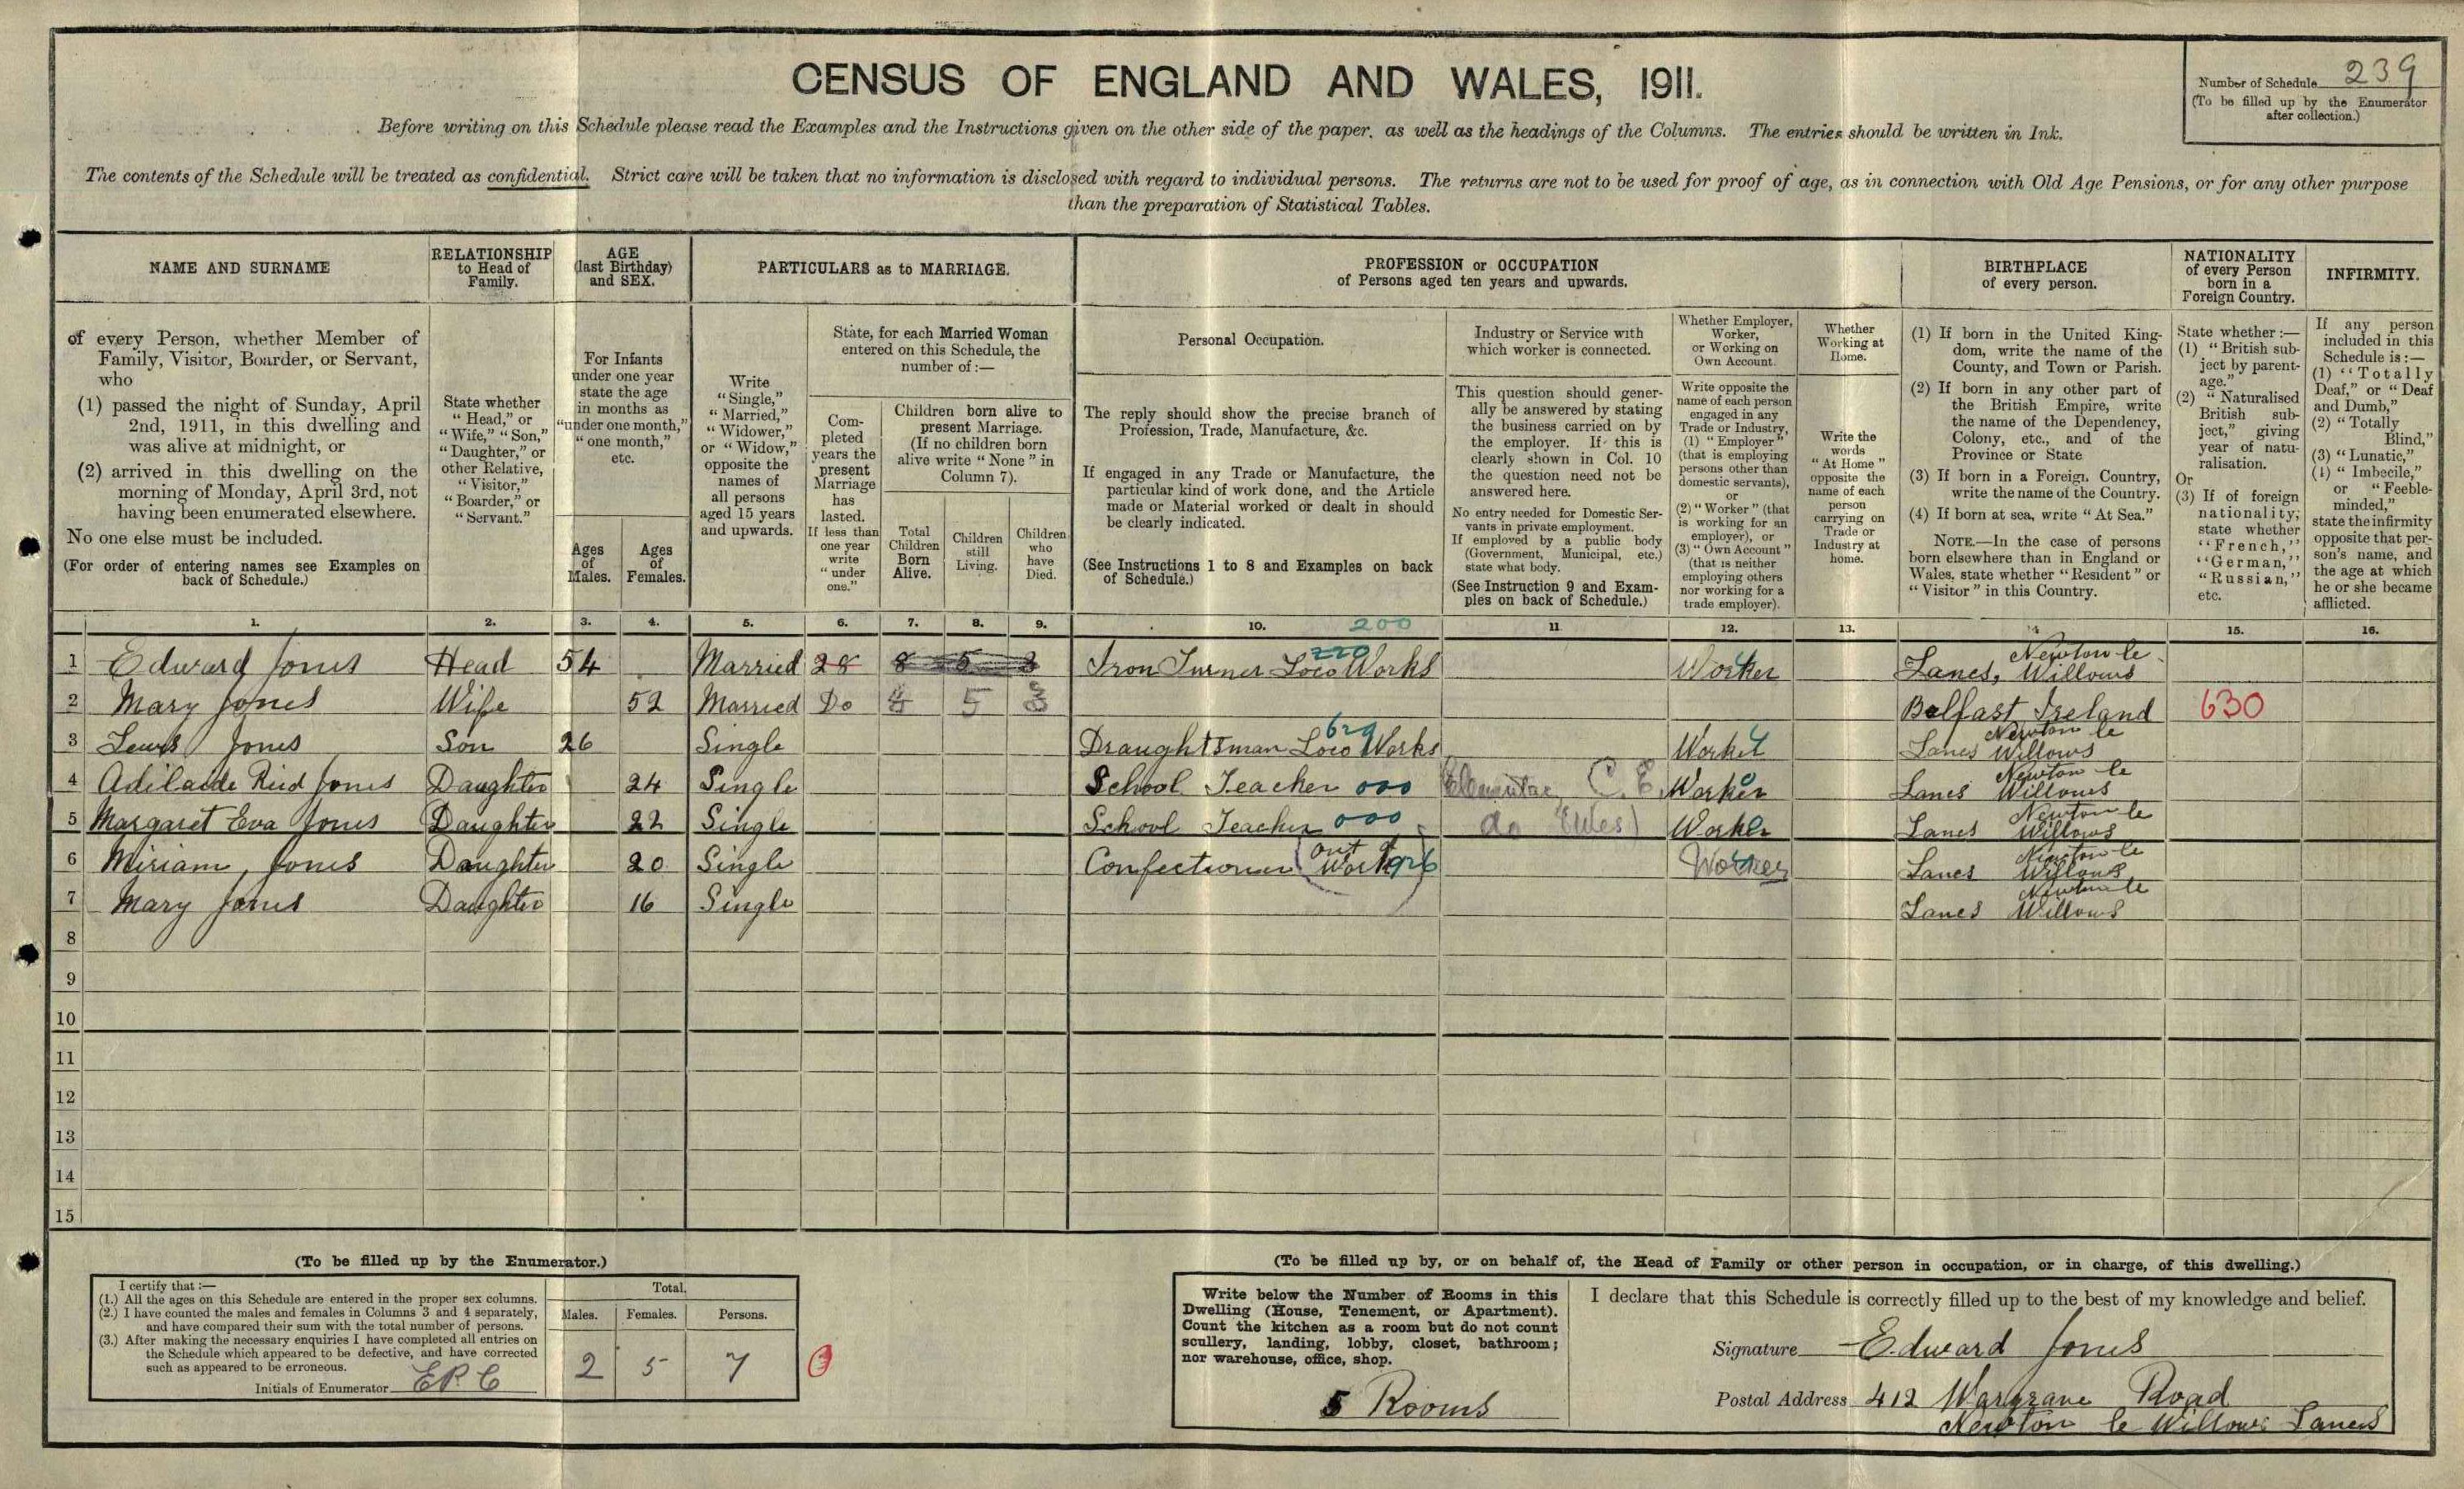 CENSUS OF ENGLAND AND WALES, 1911.
Number of Schedule 239
(To be filled up by the Enumerator
after collection.)
Before writing on this Schedule please read the Examples and the Instructions given on the other side of the paper, as well as the headings of the Columns. The entries should be written in Ink.
The contents of the Schedule will be treated as confidential. Strict care will be taken that no information is disclosed with regard to individual persons. The returns are not to be used for proof of age, as in connection with Old Age Pensions, or for any other purpose
than the preparation of Statistical Tables.
NAME AND SURNAME
of every Person, whether Member of
Family, Visitor, Boarder, or Servant,
who
(1) passed the night of Sunday, April
2nd, 1911, in this dwelling and
was alive at midnight, or
(2) arrived in this dwelling on the
morning of Monday, April 3rd, not
having been enumerated elsewhere.
No one else must be included.
(For order of entering names see Examples on
back of Schedule.)
RELATIONSHIP
to Head of
Family.
State whether
"Head," or
"Wife," "Son,"
"Daughter," or
other Relative,
"Visitor,"
"Boarder," or
"Servant."
AGE
(last Birthday)
and SEX.
For Infants
under one year
state the age
in months as
"under one month,"
"one month,"
etc.
Ages
of
Males.
Ages
of
Females.
PARTICULARS as to MARRIAGE.
Write
"Single,"
"Married,"
"Widower,"
or "Widow,"
opposite the
names of
all persons
aged 15 years
and upwards.
State, for each Married Woman
entered on this Schedule, the
number of:—
Com-
pleted
years the
present
Marriage
has
lasted.
If less than
one year
write
"under
one."
Children born alive to
present Marriage.
(If no children born
alive write "None" in
Column 7).
Total
Children
Born
Alive.
Children
still
Living.
Children
who
have
Died.
PROFESSION or OCCUPATION
of Persons aged ten years and upwards.
Personal Occupation.
The reply should show the precise branch of
Profession, Trade, Manufacture, &c.
If engaged in any Trade or Manufacture, the
particular kind of work done, and the Article
made or Material worked or dealt in should
be clearly indicated.
(See Instructions 1 to 8 and Examples on back
of Schedule.)
Industry or Service with
which worker is connected.
This question should gener-
ally be answered by stating
the business carried on by
the employer. If this is
clearly shown in Col. 10
the question need not be
answered here.
No entry needed for Domestic Ser-
vants in private employment.
If employed by a public body
(Government, Municipal, etc.)
state what body.
(See Instruction 9 and Exam-
ples on back of Schedule.)
Whether Employer,
Worker,
or Working on
Own Account.
Write opposite the
name of each person
engaged in any
Trade or Industry,
(1) "Employer"
(that is employing
persons other than
domestic servants),
or
(2) "Worker" (that
is working for an
employer), or
(3) "Own Account"
(that is neither
employing others
nor working for a
trade employer).
Whether
Working at
Home.
Write the
words
"At Home"
opposite the
name of each
person
carrying on
Trade or
Industry at
home.
BIRTHPLACE
of every person.
(1) If born in the United King-
dom, write the name of the
County, and Town or Parish.
(2) If born in any other part of
the British Empire, write
the name of the Dependency,
Colony, etc., and of the
Province or State
(3) If born in a Foreign Country,
write the name of the Country.
(4) If born at sea, write "At Sea."
NOTE.—In the case of persons
born elsewhere than in England or
Wales, state whether "Resident" or
"Visitor" in this Country.
NATIONALITY
of every Person
born in a
Foreign Country.
State whether:—
(1) "British sub-
ject by parent-
age."
(2) "Naturalised
British sub-
ject," giving
year of natu-
ralisation.
Or
(3) If of foreign
nationality,
state whether
"French,"
"German,"
"Russian,"
etc.
INFIRMITY.
If any person
included in this
Schedule is:—
(1) "Totally
Deaf," or "Deaf
and Dumb,"
(2) "Totally
Blind,"
(3) "Lunatic,"
(4) "Imbecile,"
or "Feeble-
minded,"
state the infirmity
opposite that per-
son's name, and
the age at which
he or she became
afflicted.
1. 2. 3. 4. 5. 6. 7. 8. 9. 10. 11 12. 13. 14 15. 16.
200
1 Edward Jones Head 54 Married 28 8 5 3 Iron Turner Loco Works 220 Worker Lancs, Newton le Willows
2 Mary Jones Wife 52 Married Do 5 3 Belfast Ireland 630
3 Lewis Jones Son 26 Single Draughtsman Loco Works 629 Worker Lancs Newton le Willows
4 Adilaide Reid Jones Daughter 24 Single School Teacher 000 C. E. Worker Lancs Newton le Willows
5 Margaret Eva Jones Daughter 22 Single School Teacher 000 do Worker Lancs Newton le Willows
6 Miriam Jones Daughter 20 Single Confectioner (out of Work) 926 Worker Lancs Newton le Willows
7 Mary Jones Daughter 16 Single Lancs Newton le Willows
8
9
10
11
12
13
14
15
(To be filled up by the Enumerator.)
I certify that:—
(1.) All the ages on this Schedule are entered in the proper sex columns.
(2.) I have counted the males and females in Columns 3 and 4 separately,
and have compared their sum with the total number of persons.
(3.) After making the necessary enquiries I have completed all entries on
the Schedule which appeared to be defective, and have corrected
such as appeared to be erroneous.
Initials of Enumerator E.P.C
Total.
Males. Females. Persons.
2 5 7
(To be filled up by, or on behalf of, the Head of Family or other person in occupation, or in charge, of this dwelling.)
Write below the Number of Rooms in this
Dwelling (House, Tenement, or Apartment).
Count the kitchen as a room but do not count
scullery, landing, lobby, closet, bathroom;
nor warehouse, office, shop.
5 Rooms
I declare that this Schedule is correctly filled up to the best of my knowledge and belief.
Signature Edward Jones
Postal Address 412 Wargrave Road
Newton le Willows Lancs